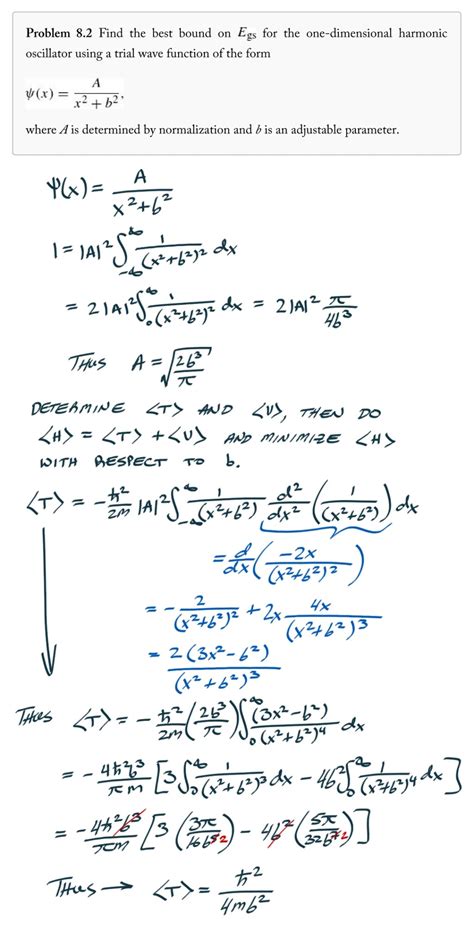 Problem 8.2 Find the best bound on E_gs for the one-dimensional harmonic
oscillator using a trial wave function of the form
ψ(x) = A / (x² + b²),
where A is determined by normalization and b is an adjustable parameter.
Ψ(x) = A / (x²+b²)
1 = |A|² ∫_{-∞}^{∞} 1/(x²+b²)² dx
= 2|A|² ∫_0^∞ 1/(x²+b²)² dx = 2|A|² π/4b³
THUS A = √(2b³/π)
DETERMINE <T> AND <U>, THEN DO
<H> = <T> + <U> AND MINIMIZE <H>
WITH RESPECT TO b.
<T> = -ħ²/2m |A|² ∫_{-∞}^{∞} 1/(x²+b²) d²/dx² (1/(x²+b²)) dx
= d/dx (-2x/(x²+b²)²)
= -2/(x²+b²)² + 2x 4x/(x²+b²)³
= 2(3x²-b²)/(x²+b²)³
THUS <T> = -ħ²/2m (2b³/π) ∫_0^∞ (3x²-b²)/(x²+b²)⁴ dx
= -4ħ²b³/πm [3 ∫_0^∞ 1/(x²+b²)³ dx - 4b² ∫_0^∞ 1/(x²+b²)⁴ dx]
= -4ħ²b³/πm [3 (3π/16b⁵²) - 4b² (5π/32b⁷²)]
THUS → <T> = ħ²/4mb²